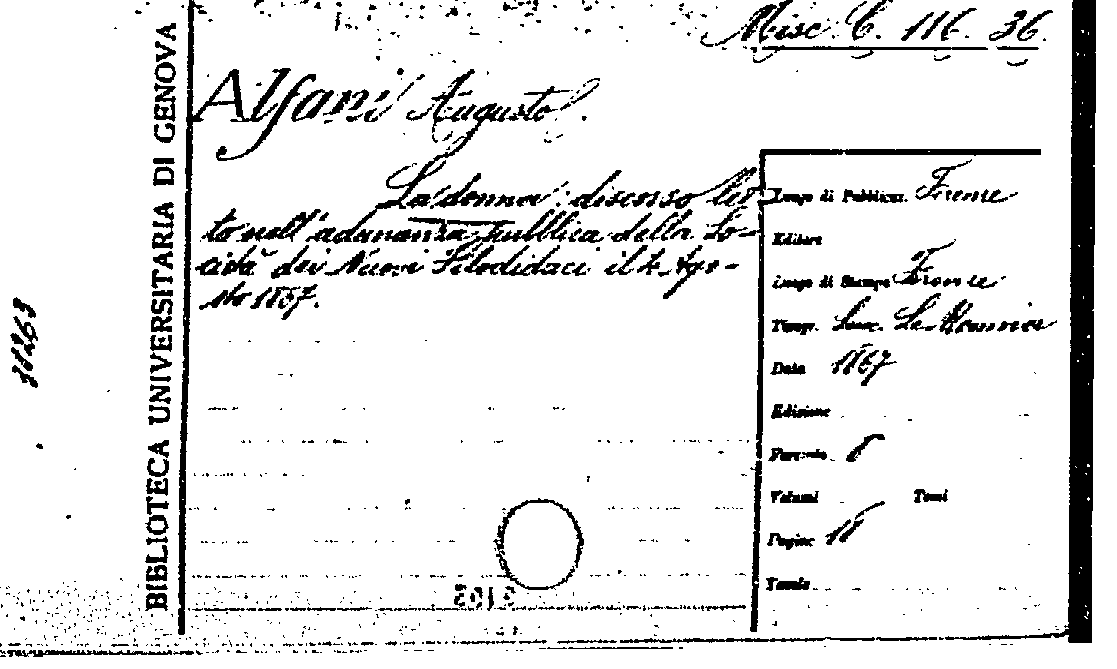 Misc. C. 116. 36.
BIBLIOTECA UNIVERSITARIA DI GENOVA
38263
Alfani Augusto.
La donna: discorso let-
to nell'adunanza pubblica della So-
cietà dei Nuovi Filodidaci il 4 Ago-
sto 1867.
Luogo di Pubblicaz. Firenze
Editore
Luogo di Stampa Firenze
Tipogr. Succ. Le Monnier
Data 1867
Edizione
Formato 8
Volumi Tomi
Pagine 18
Tavole